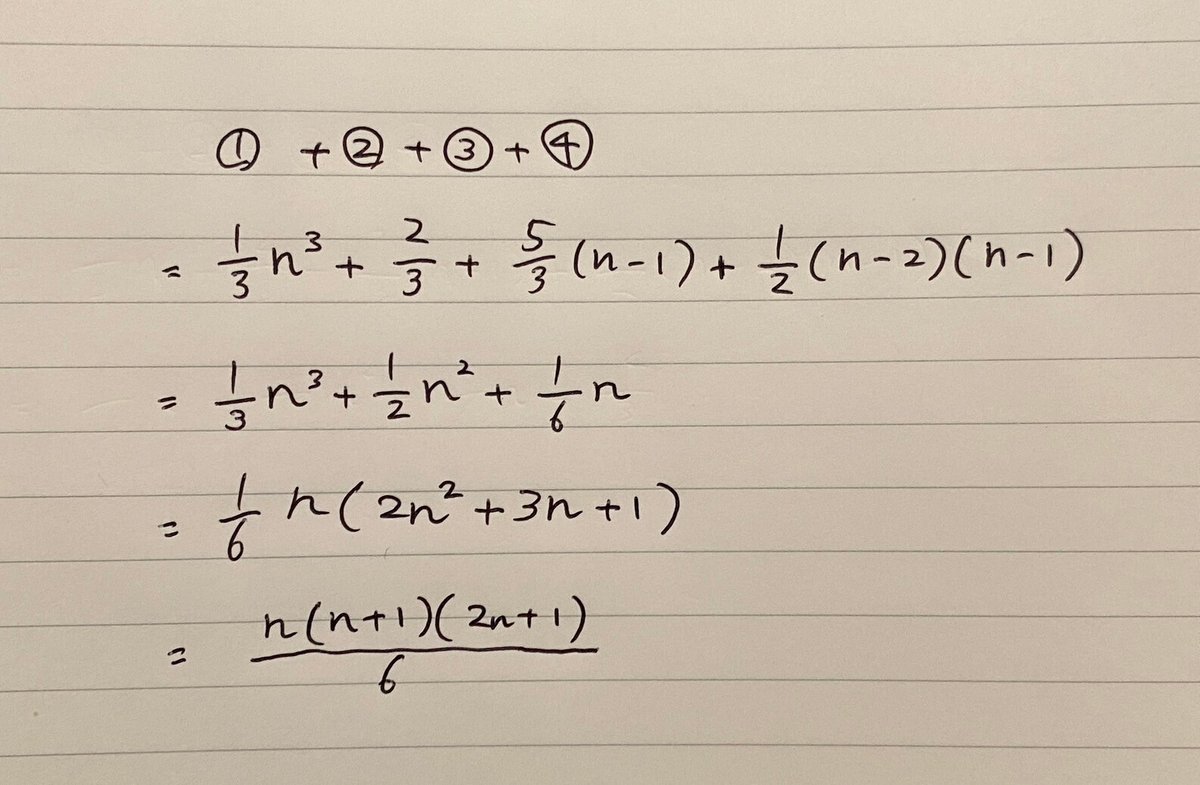 ① + ② + ③ + ④
= \frac{1}{3}n^3 + \frac{2}{3} + \frac{5}{3}(n-1) + \frac{1}{2}(n-2)(n-1)
= \frac{1}{3}n^3 + \frac{1}{2}n^2 + \frac{1}{6}n
= \frac{1}{6}n(2n^2+3n+1)
= \frac{n(n+1)(2n+1)}{6}